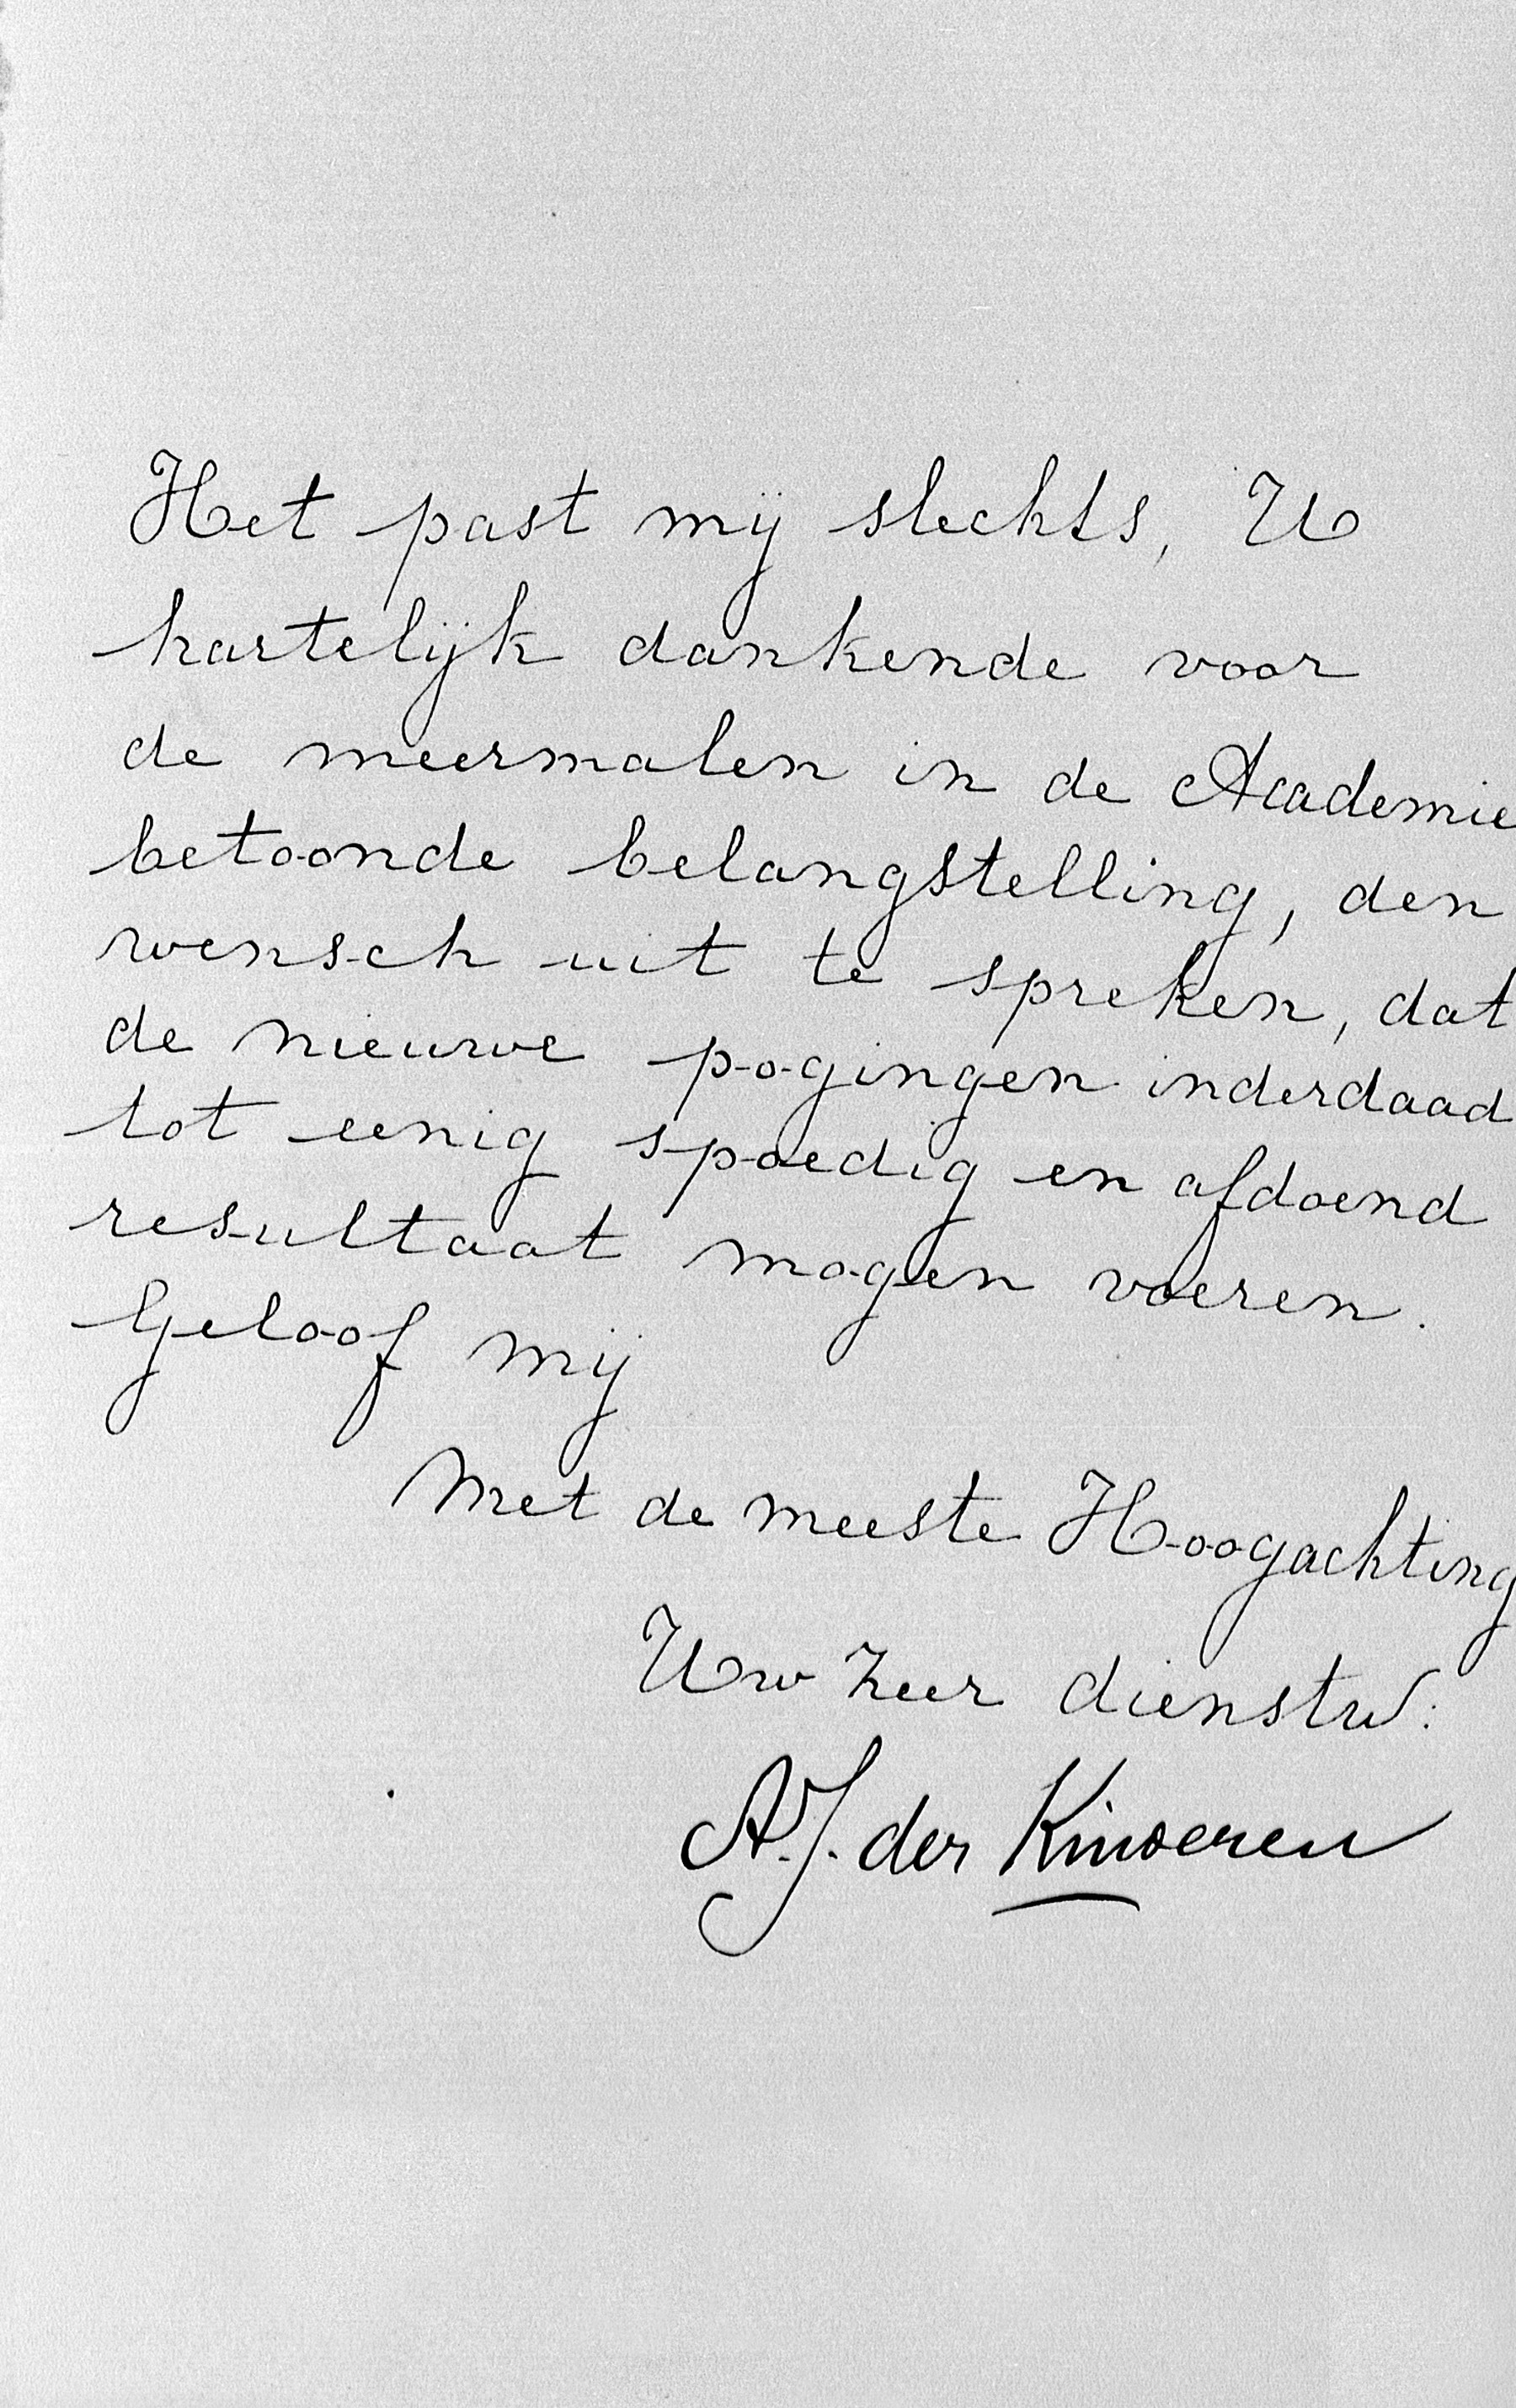 Het past mij slechts, U
hartelijk dankende voor
de meermalen in de Academie
betoonde belangstelling, den
wensch uit te spreken, dat
de nieuwe pogingen inderdaad
tot eenig spoedig en afdoend
resultaat mogen voeren.
Geloof mij
Met de meeste Hoogachting
Uw zeer dienstw:
A.J. der Kinderen